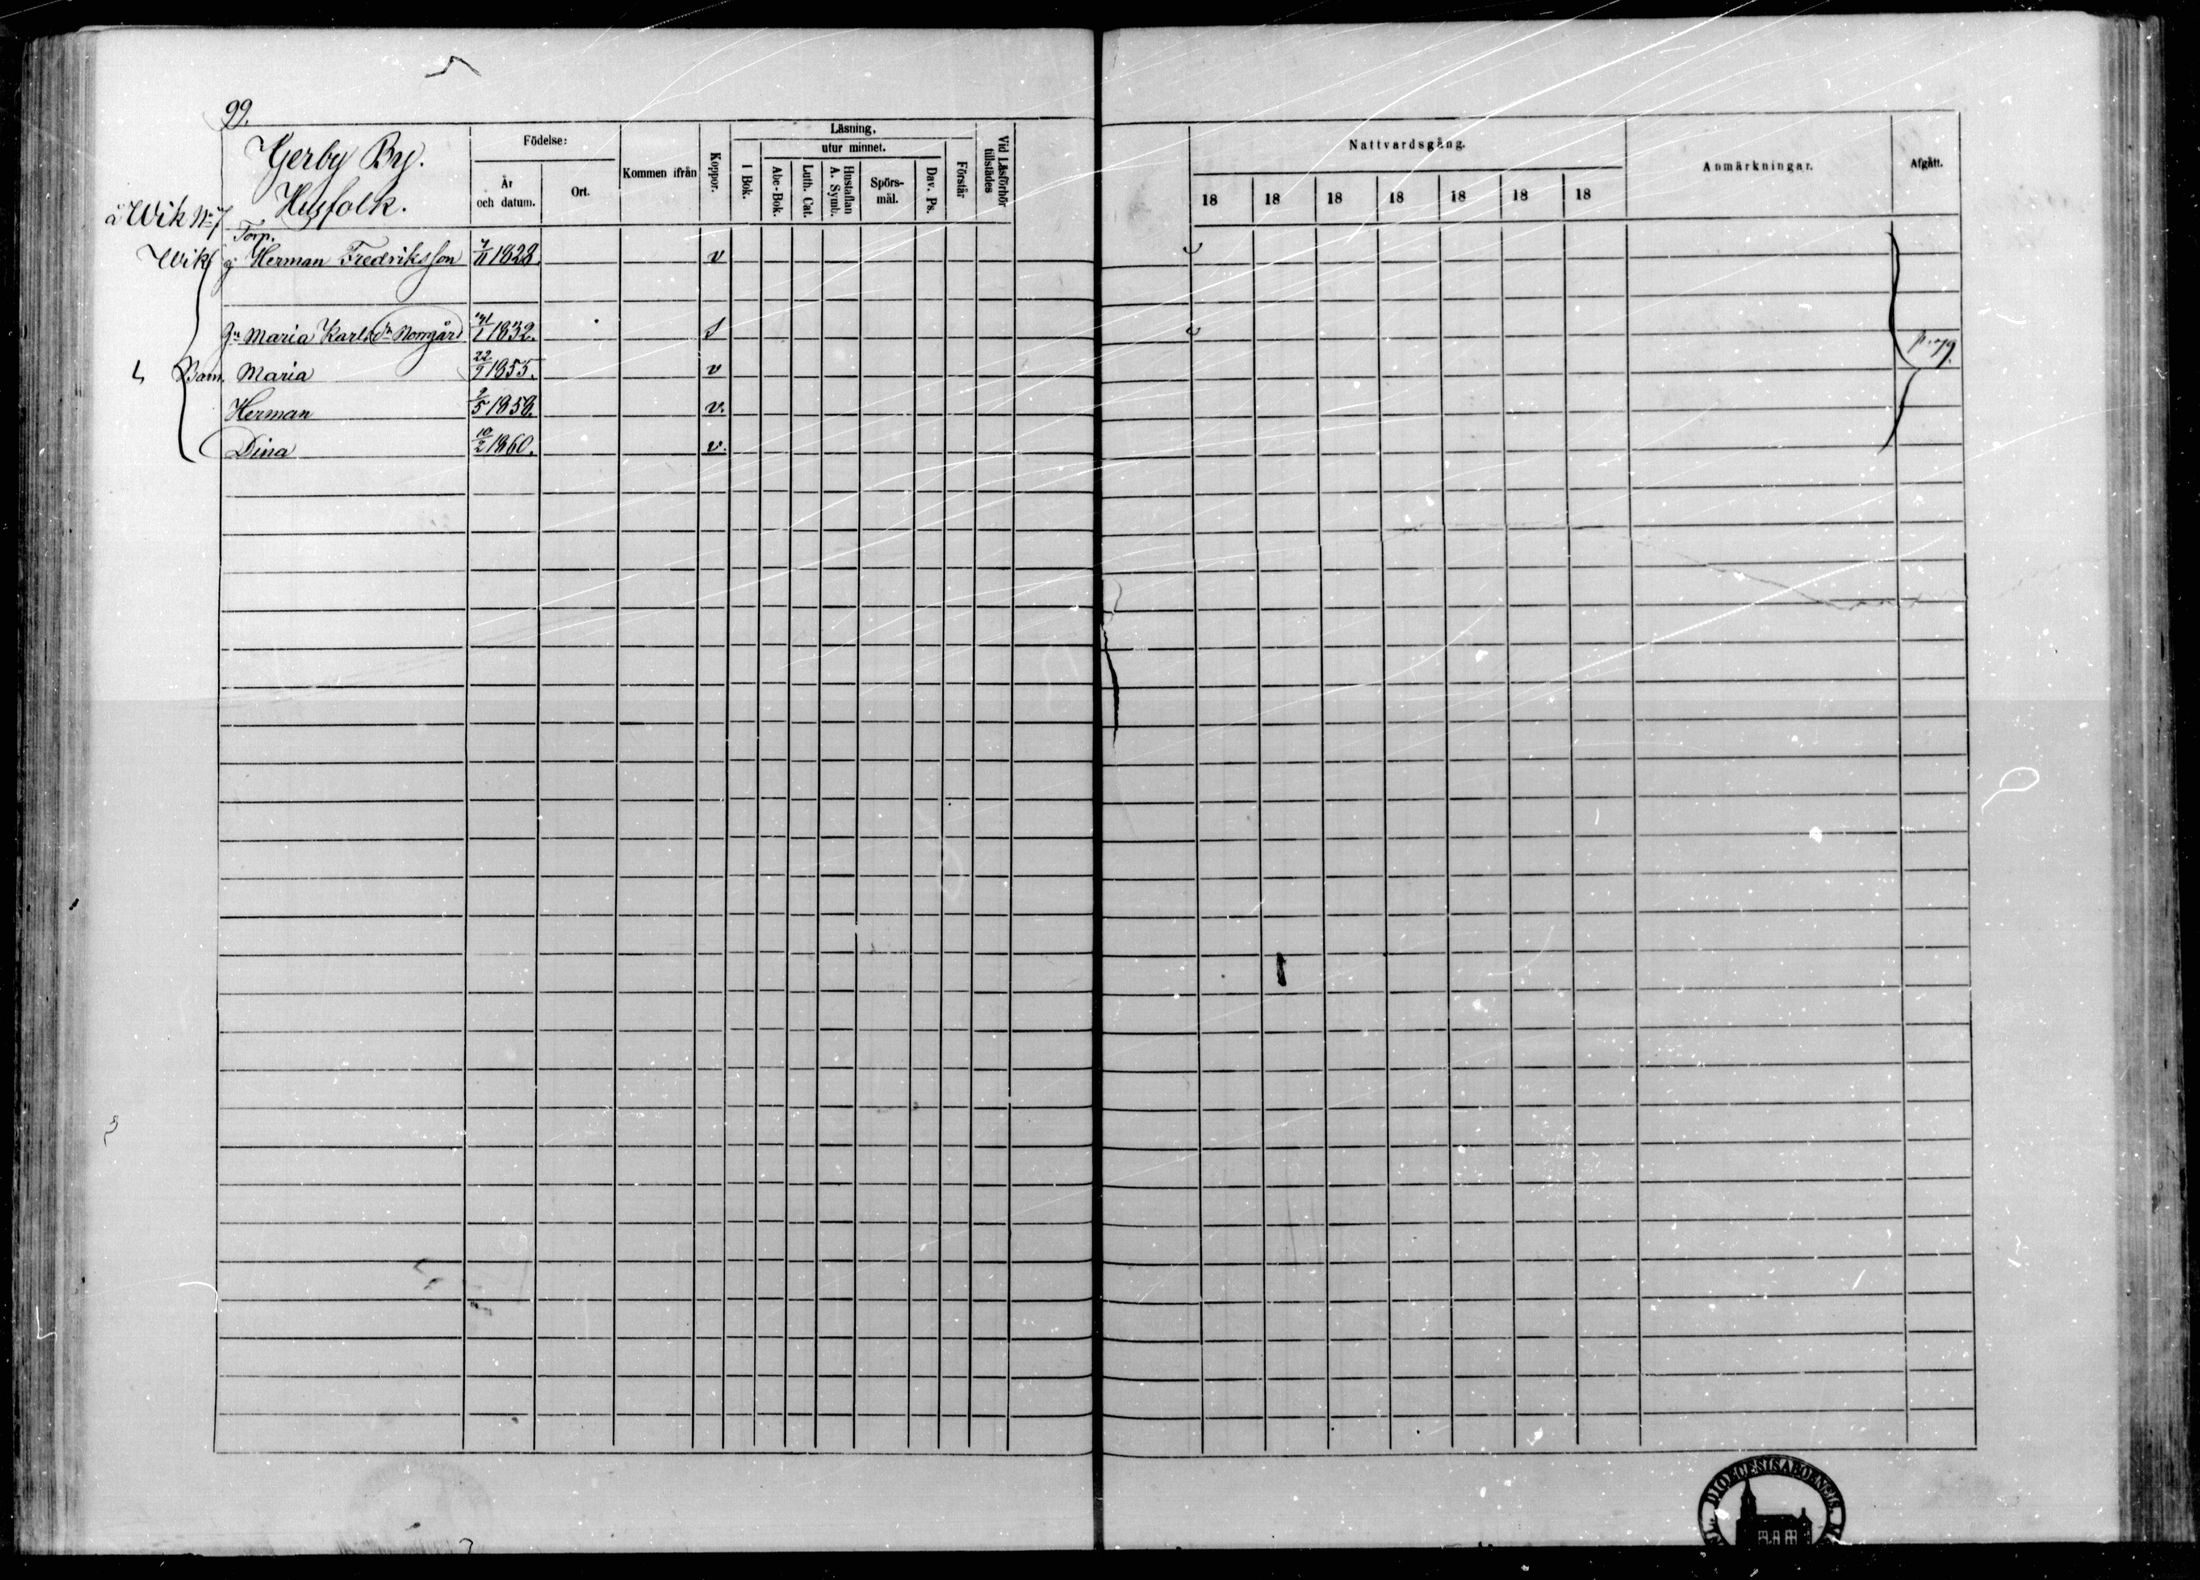 99.
Gerby By.
Husfolk.
å Wik No 7
Födelse:
År och datum.
Ort.
Kommen ifrån
Koppor.
Läsning,
utur minnet.
I Bok.
Abc-Bok.
Luth. Cat.
Hustaflan A. Symb.
Spörs-mål.
Dav. Ps.
Förstår
Vid Läsförhör tillstädes
Nattvardsgång.
18 18 18 18 18 18 18
Anmärkningar.
Afgått.
Torp.
Wik g. Herman Fredriksson 11 1828. v
Maria Karlsdr Norrgård 1 1832. s
p. 79.
Barn. Maria 22/9 1855. v
Herman 9/5 1858. v.
Dina 10/2 1860. v.
DIOECESIS ABOENSIS